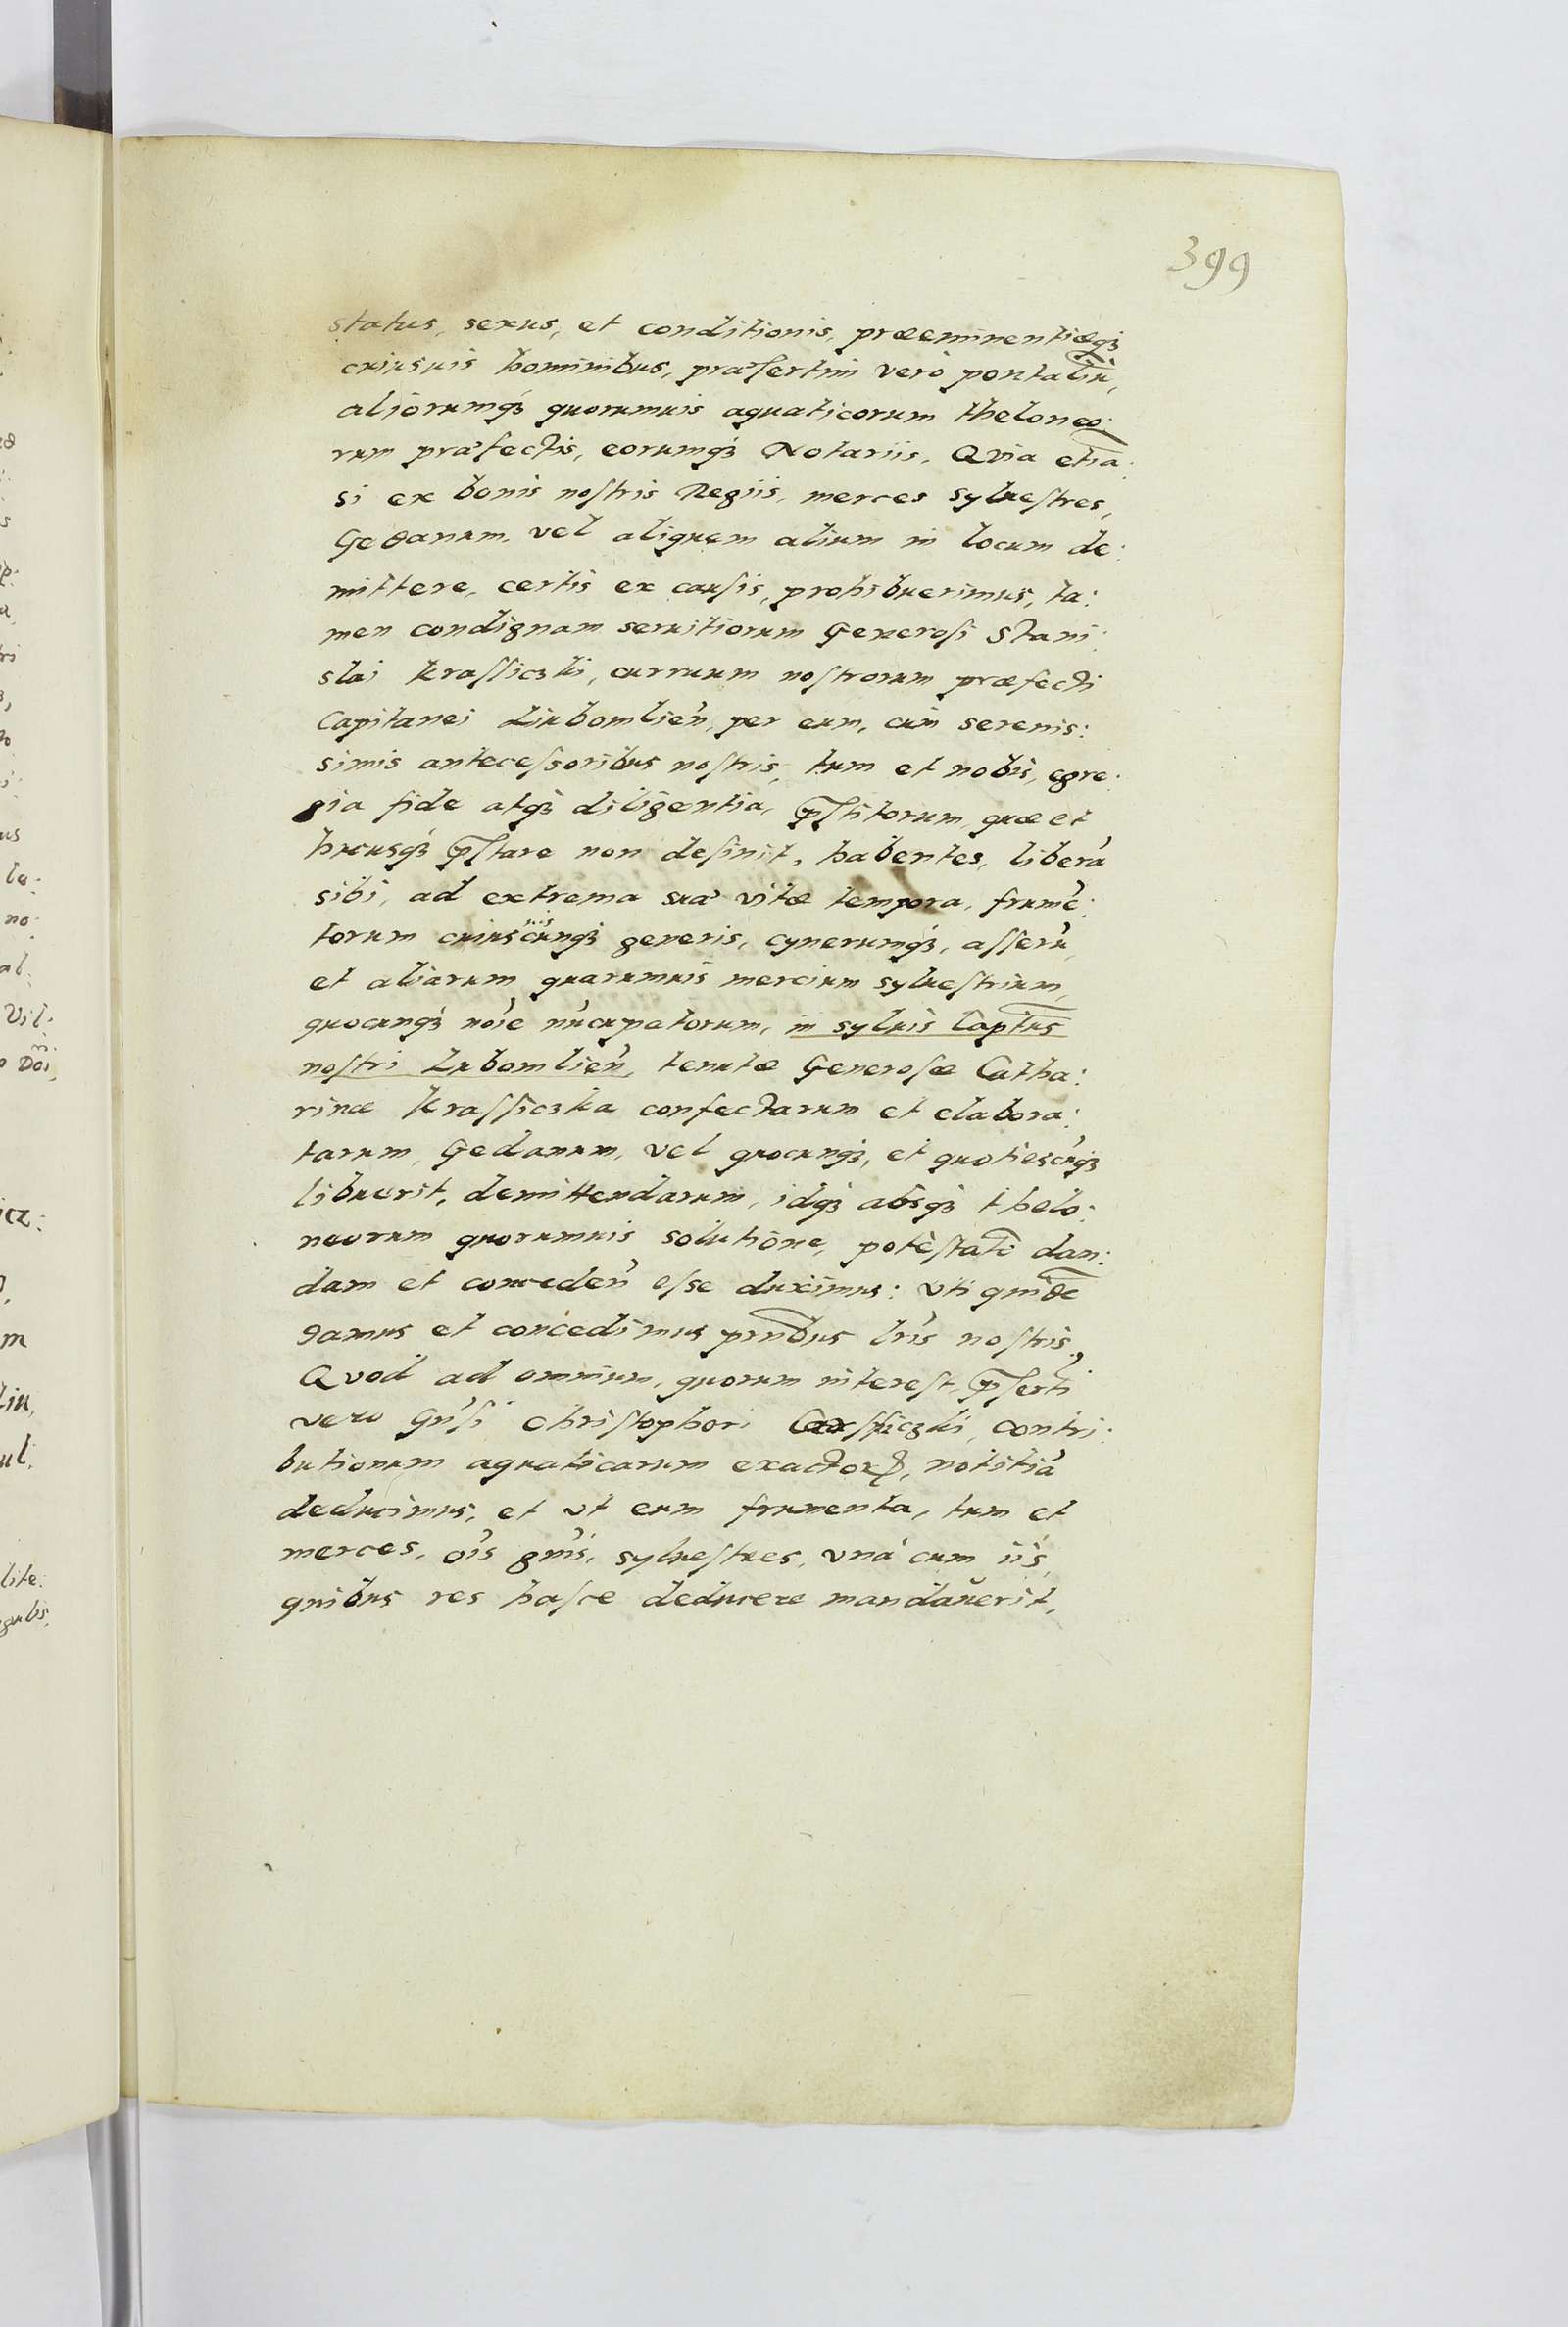 399
status, sexus, et conditionis, præeminentiæq₃
cuiusuis hominibus, præsertim verò pontaliū,
aliorumq₃ quorumuis aquaticorum theloneo:
rum præfectis, eorumq₃ Notariis. Qvia etiā:
si ex bonis nostris Regiis, merces syluestres,
Gedanum, vel aliquem alium in locum de:
mittere, certis ex causis, prohibuerimus, ta:
men condignam seruitiorum Generosi Stani:
slai Krassiczki, curruum nostrorum præfecti
Capitanei Liubomlieñ, per eum, cùm serenis:
simis antecessoribus nostris, tum et nobis, egre:
gia fide atq₃ diligentia, p̄stitorum, quæ et
hucusq₃ p̄stare non desinit, habentes, liberā
sibi, ad extrema suæ vitæ tempora, frumē:
torum cuiuscunq₃ uis generis, cynerumq₃, asserū,
et aliarum quarumuis mercium syluestrium,
quocunq₃ noīe nūcupatorum, in syluis Capt̄us
nostri Lubomlieñ, tenutæ Generosæ Catha:
rinæ Krassiczka confectarum et elabora:
tarum, Gedanum, vel quocunq₃, et quotiescūq₃
libuerit, demittendarum, idq₃ absq₃ thelo:
neorum quorumuis solutione, potestatē dan:
dam et conceden̄ esse duximus: vti quidē
damus et concedimus pn̄tibus lr̄is nostris.
Qvod ad omnium, quorum interest, p̄sertī
vero Gn̄si Christophori Cossiczki, contri:
butionum aquaticarum exactoꝝ, notitiā
deducimus, et vt eum frumenta, tum et
merces, oīs gn̄is, syluestres, vnà cum iis,
quibus res hasce deducere mandauerit,